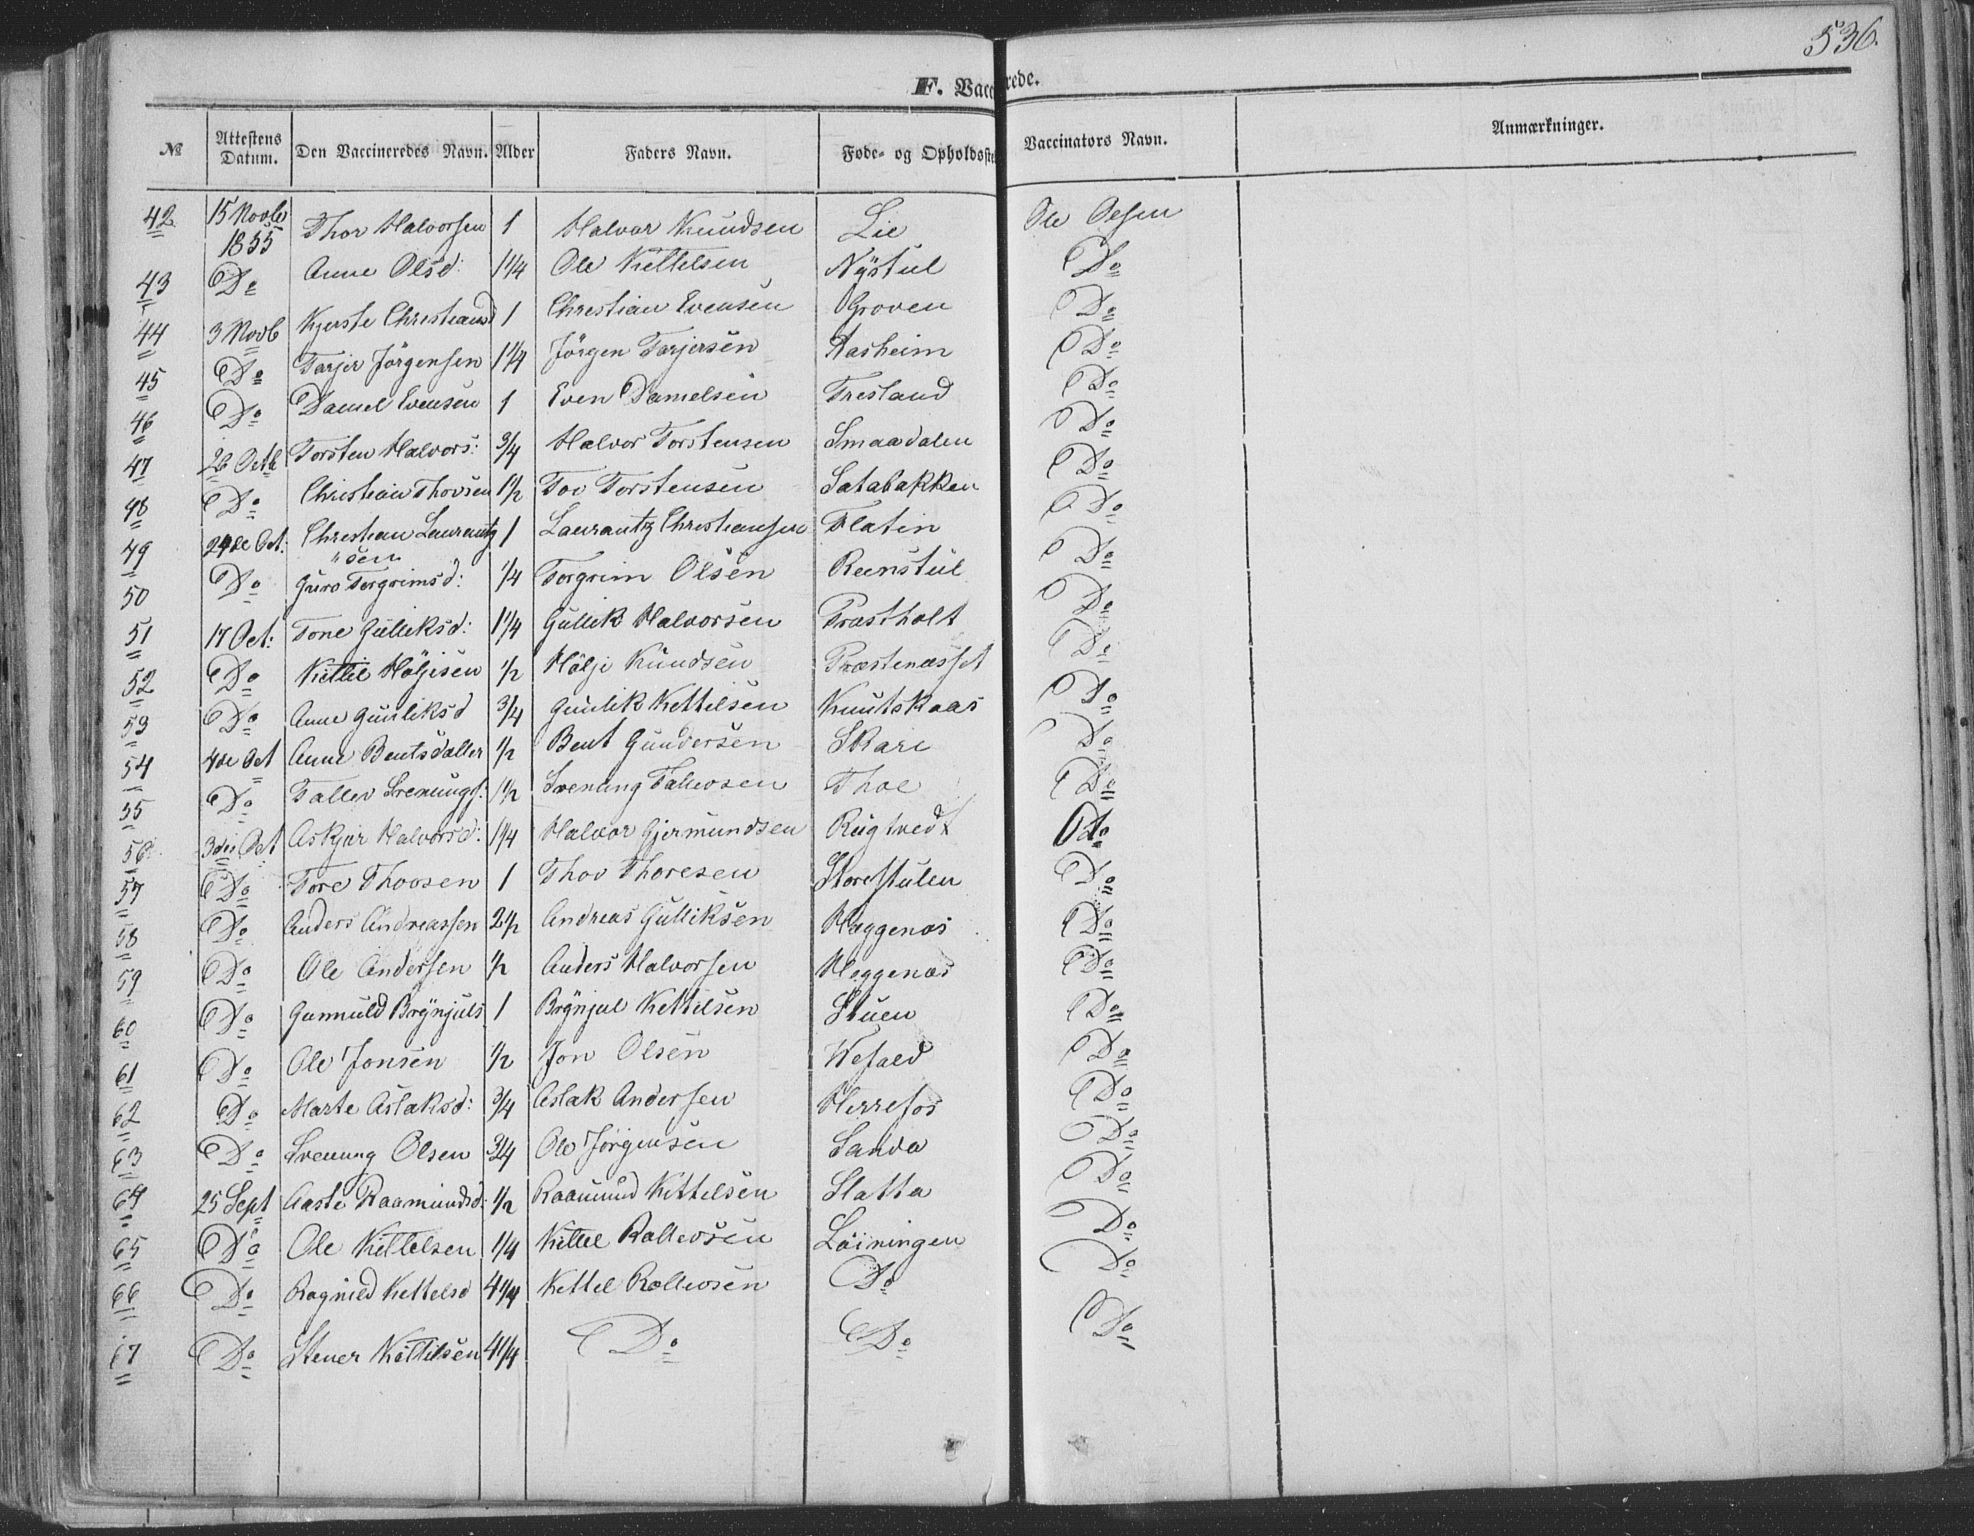 536.
F. Vaccinerede.
№ Attestens Datum. Den Vaccineredes Navn. Alder Faders Navn. Føde- og Opholdsste Vaccinators Navn. Anmærkninger.
42 15 Novbr 1855 Thor Halvorsen 1 Halvor Knudsen Lie Ole Olsen
43 Do Anne Olsd: 1 1/4 Ole Kittelsen Nÿstul Do
44 3 Novb Kjerste Christiansd 1 Christian Evensen Groven Do
45 Do Tarjer Jörgensen 1 1/4 Jörgen Tarjersen Aasheim Do
46 Do Daniel Evensen 1 Even Danielsen Tresland Do
47 26 Octb Torsten Halvors: 3/4 Halvor Torstensen Smaadalen Do
48 Do Christian Thovsen 1 1/2 Tov Torstensen Satabakken Do
49 24de Oct: Christian Laurantz 1 Laurantz Christiansen Flatin Do
" sen
50 Do Guro Torgrimsd: 1/4 Torgrim Olsen Reenstul Do
51 17 Oct: Tone Gulliksd: 1 1/4 Gullik Halvorsen Præstholt Do
52 Do Kittil Höljesen 1/2 Hölje Knudsen Præstenæsset Do
53 Do Anne Gunliksd 3/4 Gunlik Kettilsen Knutskaas Do
54 4de Oct Anne Bentsdatter 1/2 Bent Gundersen Skare Do
55 Do Tallev Svenungs: 1 1/2 Svenung Tallevsen Thoe Do
56 3die Oct Askjær Halvorsd: 1 1/4 Halvor Gjermundsen Rugtvedt Do
57 Do Tore Thovsen 1 Thov Thoresen Storestulen Do
58 Do Anders Andreassen 2 1/2 Andreas Gulliksen Heggenæs Do
59 Do Ole Andersen 1/2 Anders Halvorsen Heggenæs Do
60 Do Gunnuld Brÿnjuls 1 Brÿnjul Kettilsen Stuen Do
61 Do Ole Jonsen 1/2 Jon Olsen Wefald Do
62 Do Marte Aslaksd: 3/4 Aslak Andersen Herrefos Do
63 Do Svenung Olsen 3/4 Ole Jörgensen Landa Do
64 25 Sept Aaste Raamundsd: 1/2 Raamund Kittelsen Slatta Do
65 Do Ole Kittelsen 1/4 Kittel Rollevsen Löiningen Do
66 Do Ragnild Kettelsd 4 1/4 Kettel Rollevsen Do Do
67 Do Stener Kettilsen 4 1/4 Do Do Do